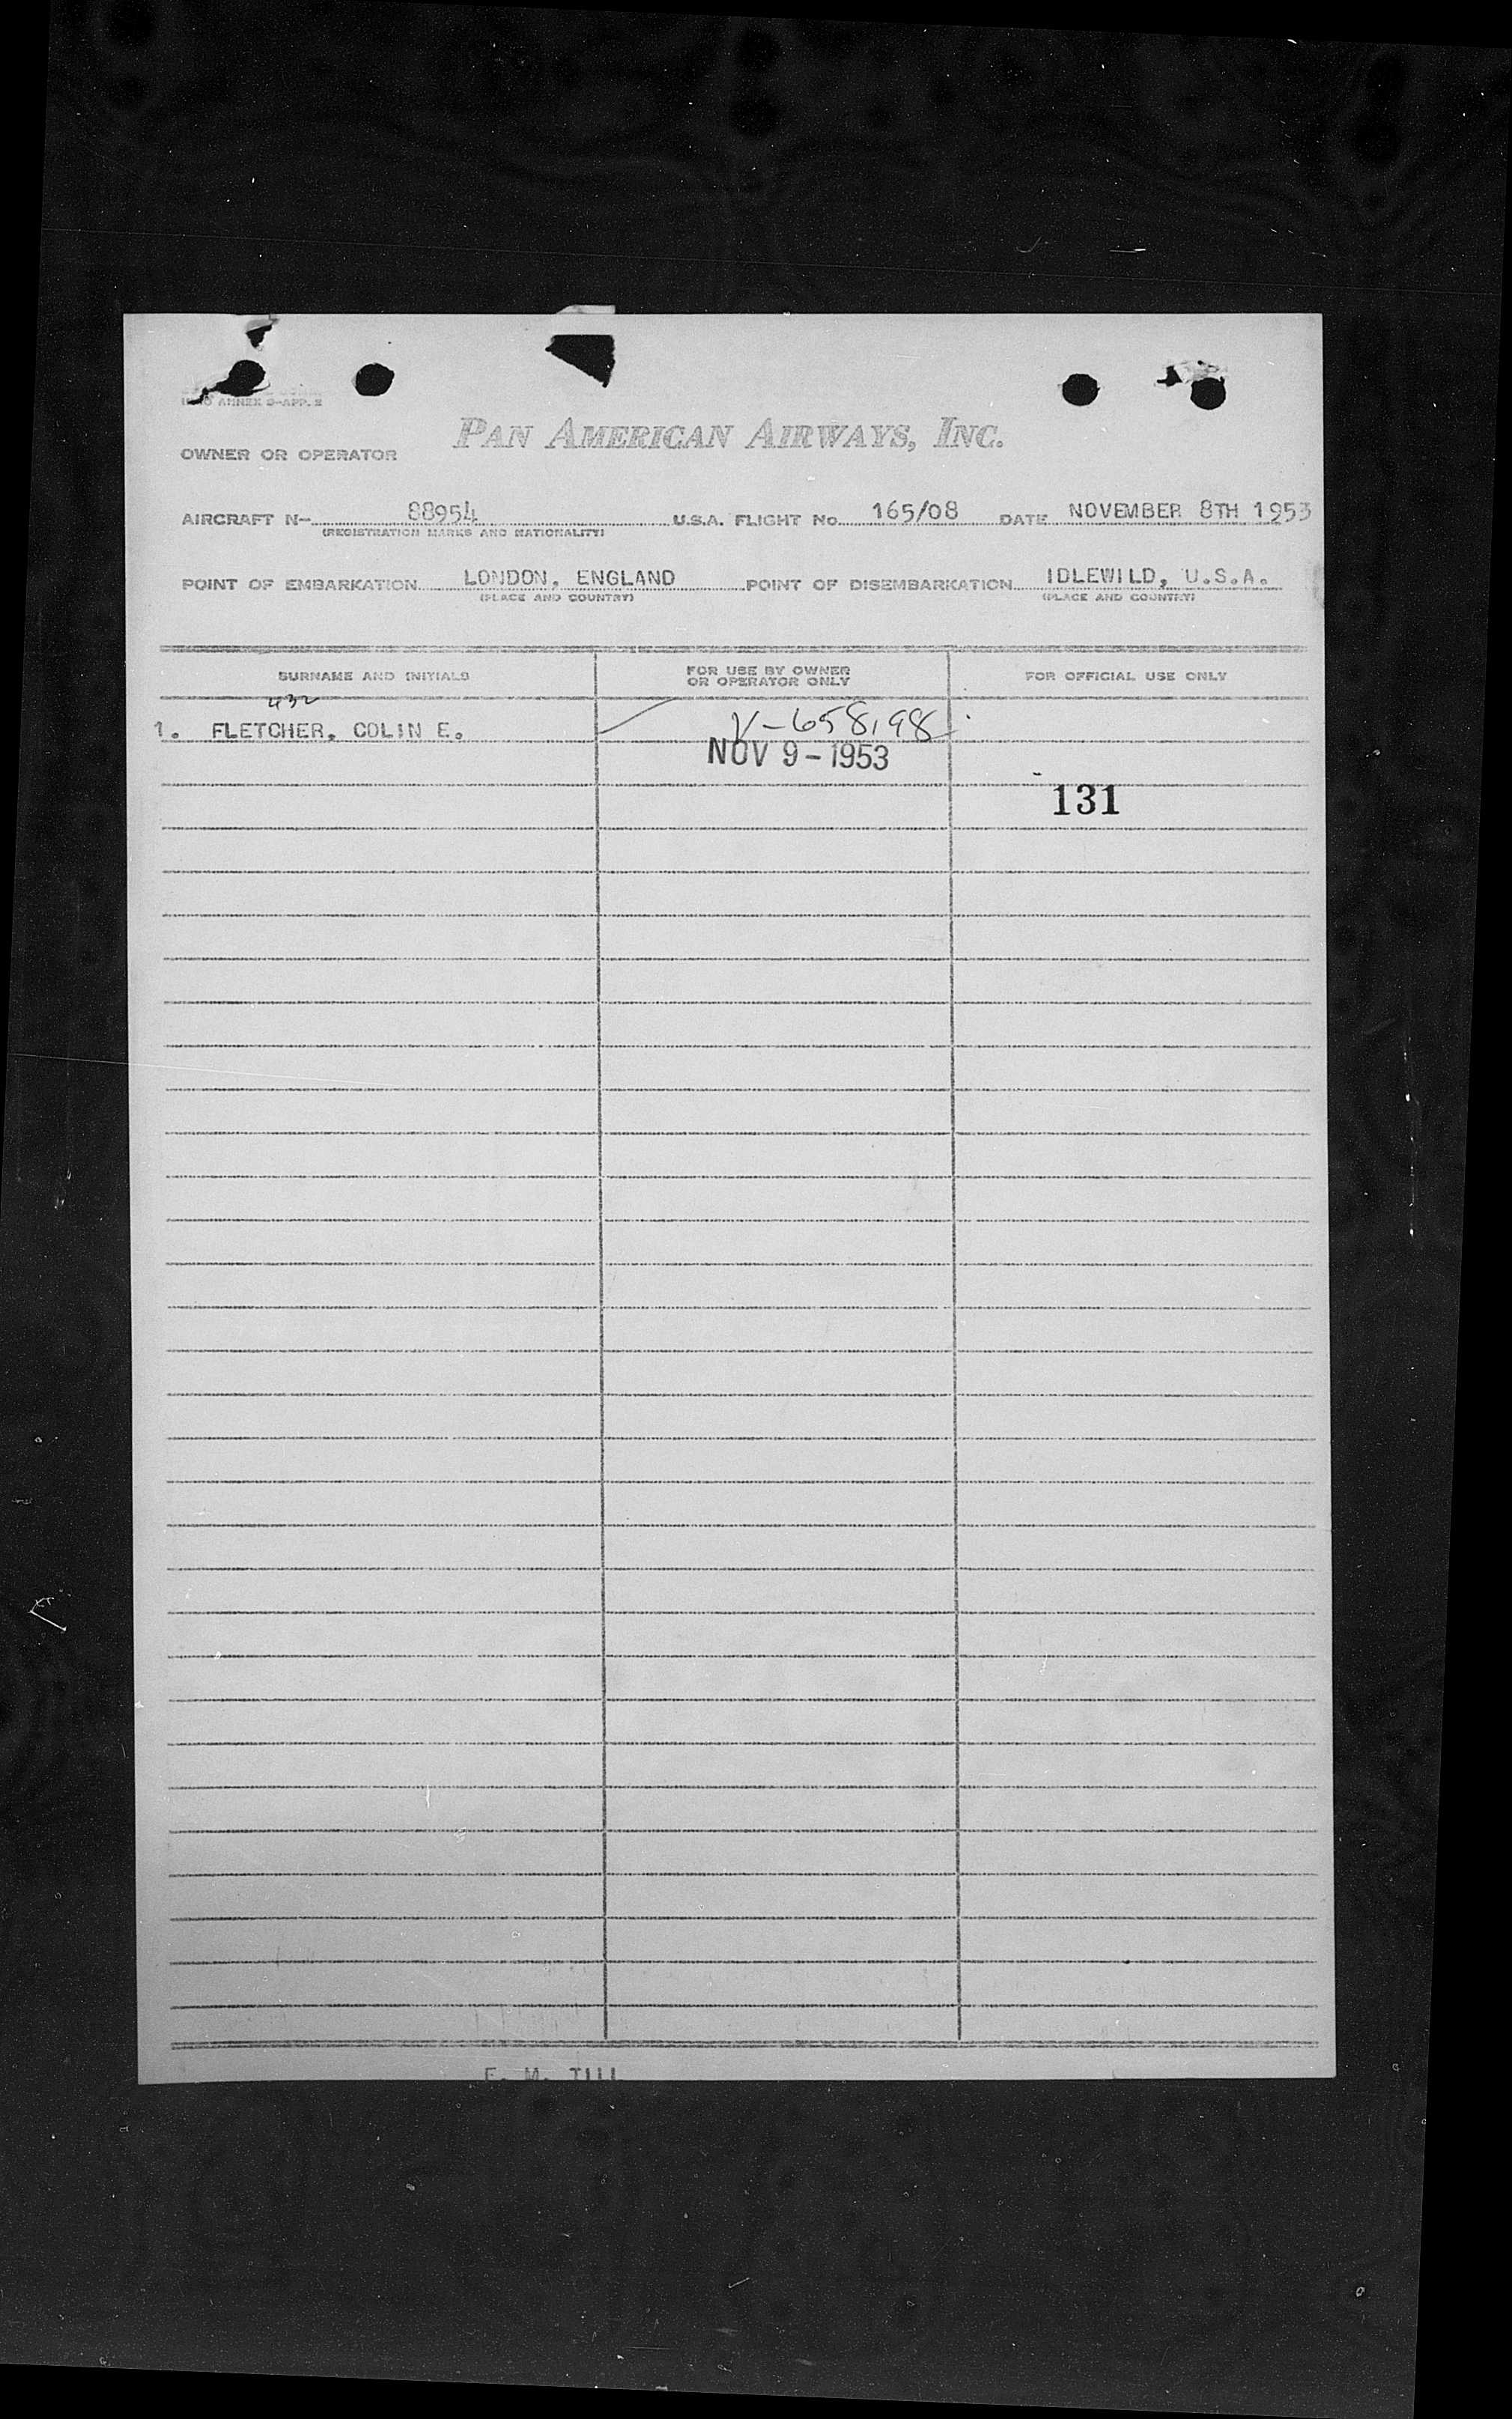 ANNEX 9-APP. 2
PAN AMERICAN AIRWAYS, INC.
OWNER OR OPERATOR
AIRCRAFT N- 88954 U.S.A. FLIGHT No. 165/08 DATE NOVEMBER 8TH 1953
(REGISTRATION MARKS AND NATIONALITY)
POINT OF EMBARKATION LONDON, ENGLAND POINT OF DISEMBARKATION IDLEWILD, U.S.A.
(PLACE AND COUNTRY) (PLACE AND COUNTRY)
SURNAME AND INITIALS FOR USE BY OWNER OR OPERATOR ONLY FOR OFFICIAL USE ONLY
432
1. FLETCHER, COLIN E. V-658,98
NOV 9-1953
131